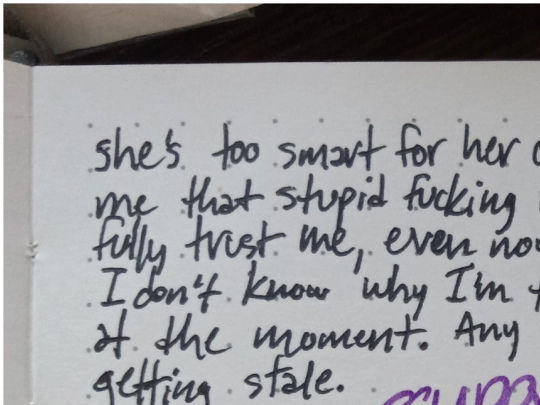 she's too smart for her
me that stupid fucking
fully trust me, even now
I don't know why I'm
at the moment. Any
getting stale.